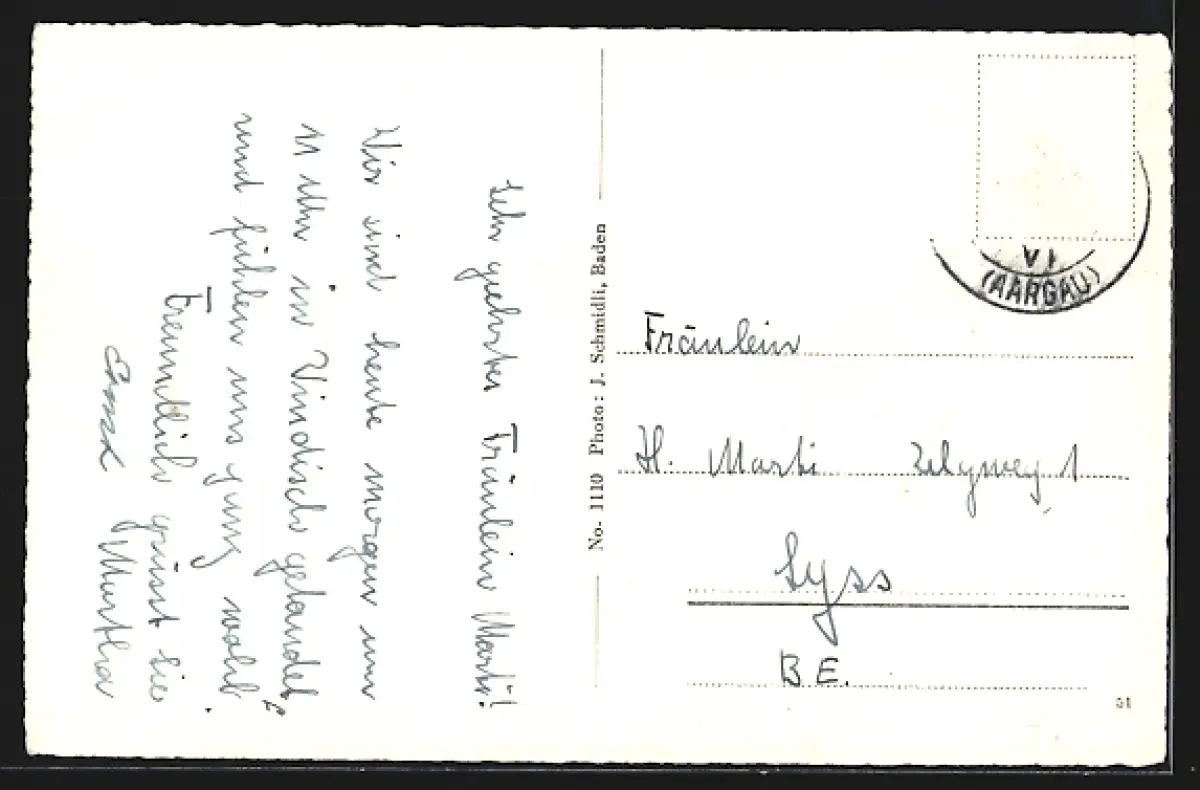 Sehr geehrtes Fräulein Marti!
Wir sind heute morgen um
11 Uhr in Vindisch gelandet
und fühlen uns ganz wohl.
Freundlich grüsst Sie
Martha
No- 1110 Photo: J. Schmidli, Baden
VI
(AARGAU)
Fräulein
H. Marti
1
Lyss
BE.
51